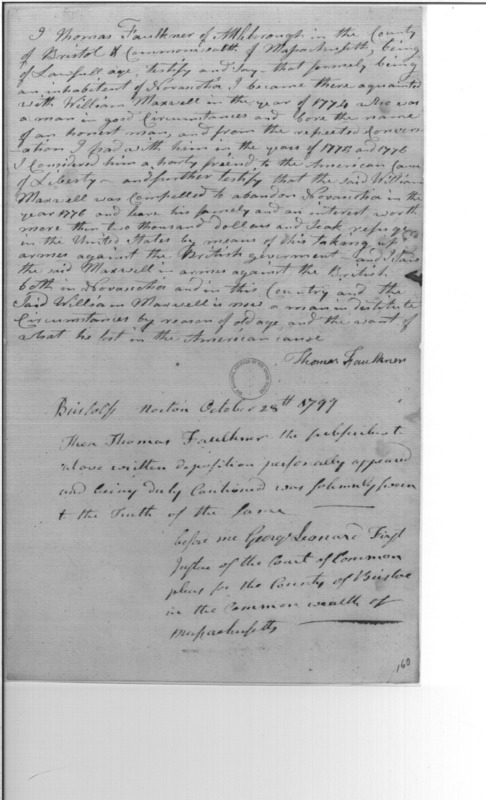 I Thomas Faulkner of Attleborough in the County
of Bristol & Commonwealth of Massachusetts, being
of Lawfull age, testify and say, that formely being
an inhabitent of Novascotia I became there aquainted
with William Maxwell in the year of 1774 who was
a man in good Circumstances and bore the name
of an honest man, and from the repeeted Conver
ation I had with him in the years of 1775 and 1776
I Considred him a harty friend to the American Cause
of Liberty — and further testify that the said William
Maxwell was Compelled to abandon Novascotia in the
year 1776 and leave his famely and an interest worth
more then two thousand dollars and Seak refuge
in the United States by means of his taking up
armes against the British goverment — and I saw
the said Maxwell in armes against the British
both in Novascotia and in this Country and the
Said William Maxwell is now a man in destitute
Circumstances by reason of old age, and the want of
what he lost in the American cause
Thomas Faulkner
Bristol ss Norton October 28th 1799
Then Thomas Faulkner the subscriber
above written deposition personally appeared
and being duly Cautioned was Solemnly sworn
to the Truth of the same
before me George Leonard First
Justice of the Court of Common
pleas for the County of Bristol
in the Common wealth of
Massachusetts
160